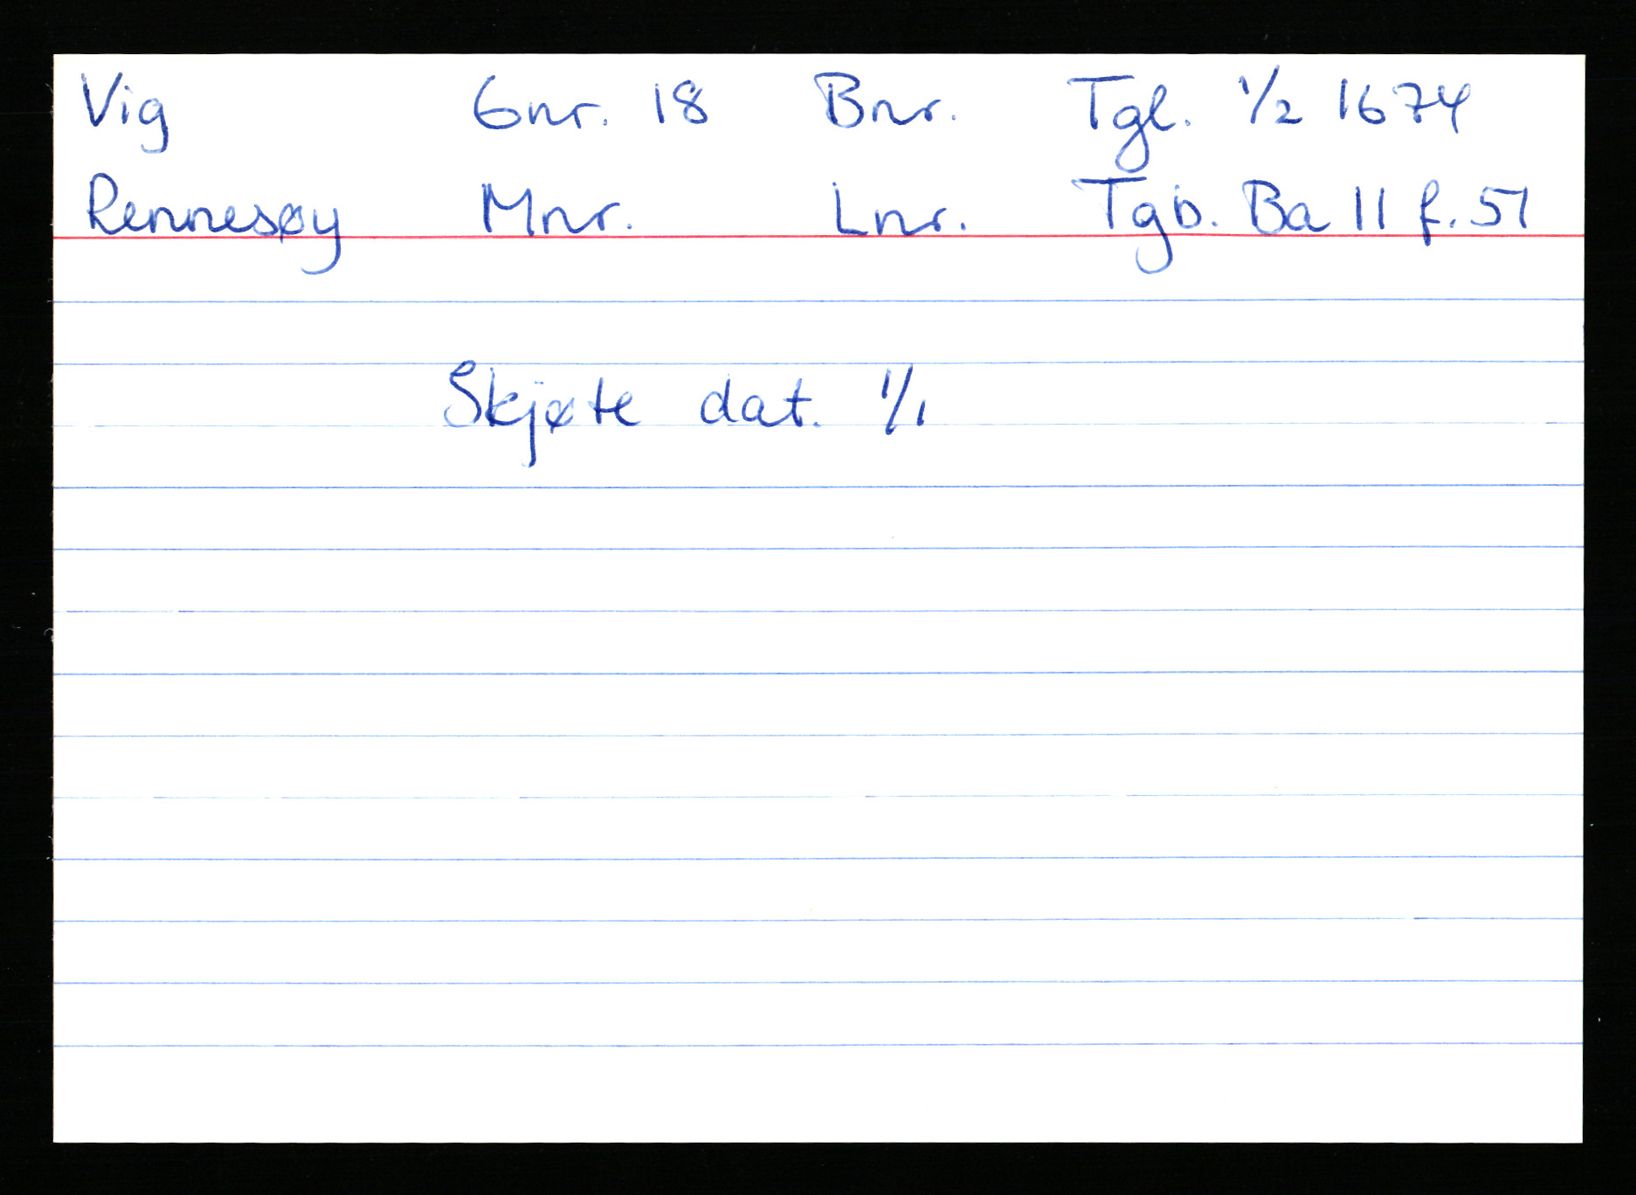 Vig Gnr. 18 Bnr. Tgl. 1/2 1674
Rennesøy Mnr. Lnr. Tgb. Ba 11 f. 51
Skjøte dat. 1/1